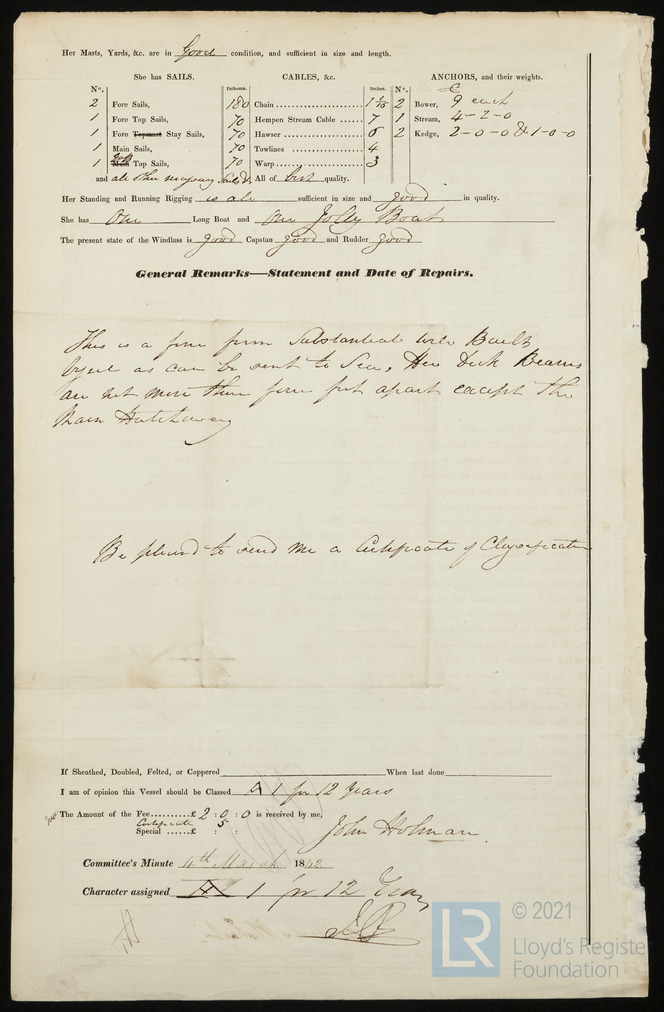 Her Masts, Yards, &c. are in Good condition, and sufficient in size and length.
She has SAILS. CABLES, &c. ANCHORS, and their weights.
No. Fathoms. Inches. No.
2 Fore Sails, 180 Chain 1 1/16 2 Bower, 9 each
1 Fore Top Sails, 70 Hempen Stream Cable 7 1 Stream, 4-2-0
1 Fore Topmast Stay Sails, 70 Hawser 6 2 Kedge, 2-0-0 & 1-0-0
1 Main Sails, 70 Towlines 4
1 Main Gaff Top Sails, 70 Warp 3
and all other necessary Sails &c All of best quality.
Her Standing and Running Rigging is all sufficient in size and good in quality.
She has One Long Boat and One Jolly Boat
The present state of the Windlass is good Capstan good and Rudder good
General Remarks—Statement and Date of Repairs.
This is a fine firm Substantial well Built
as can be sent to Sea, Her Deck Beams
are not more than four feet apart except the
Main Hatchway
Be pleased to send me a Certificate of Classification
If Sheathed, Doubled, Felted, or Coppered When last done
I am of opinion this Vessel should be Classed A 1 for 12 Years
The Amount of the Fee £ 2 : 0 : 0 is received by me,
Certificate 5
Special £ : :
John Holman
Committee's Minute 4th March 1842
Character assigned A 1 for 12 Years
© 2021
LR
Lloyd's Register
Foundation